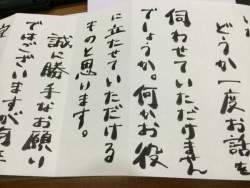 どうか一度お話を
伺わせていただけません
でしょうか。何かお役
に立たせていただける
ものと思います。
誠に勝手なお願い
ではございますが